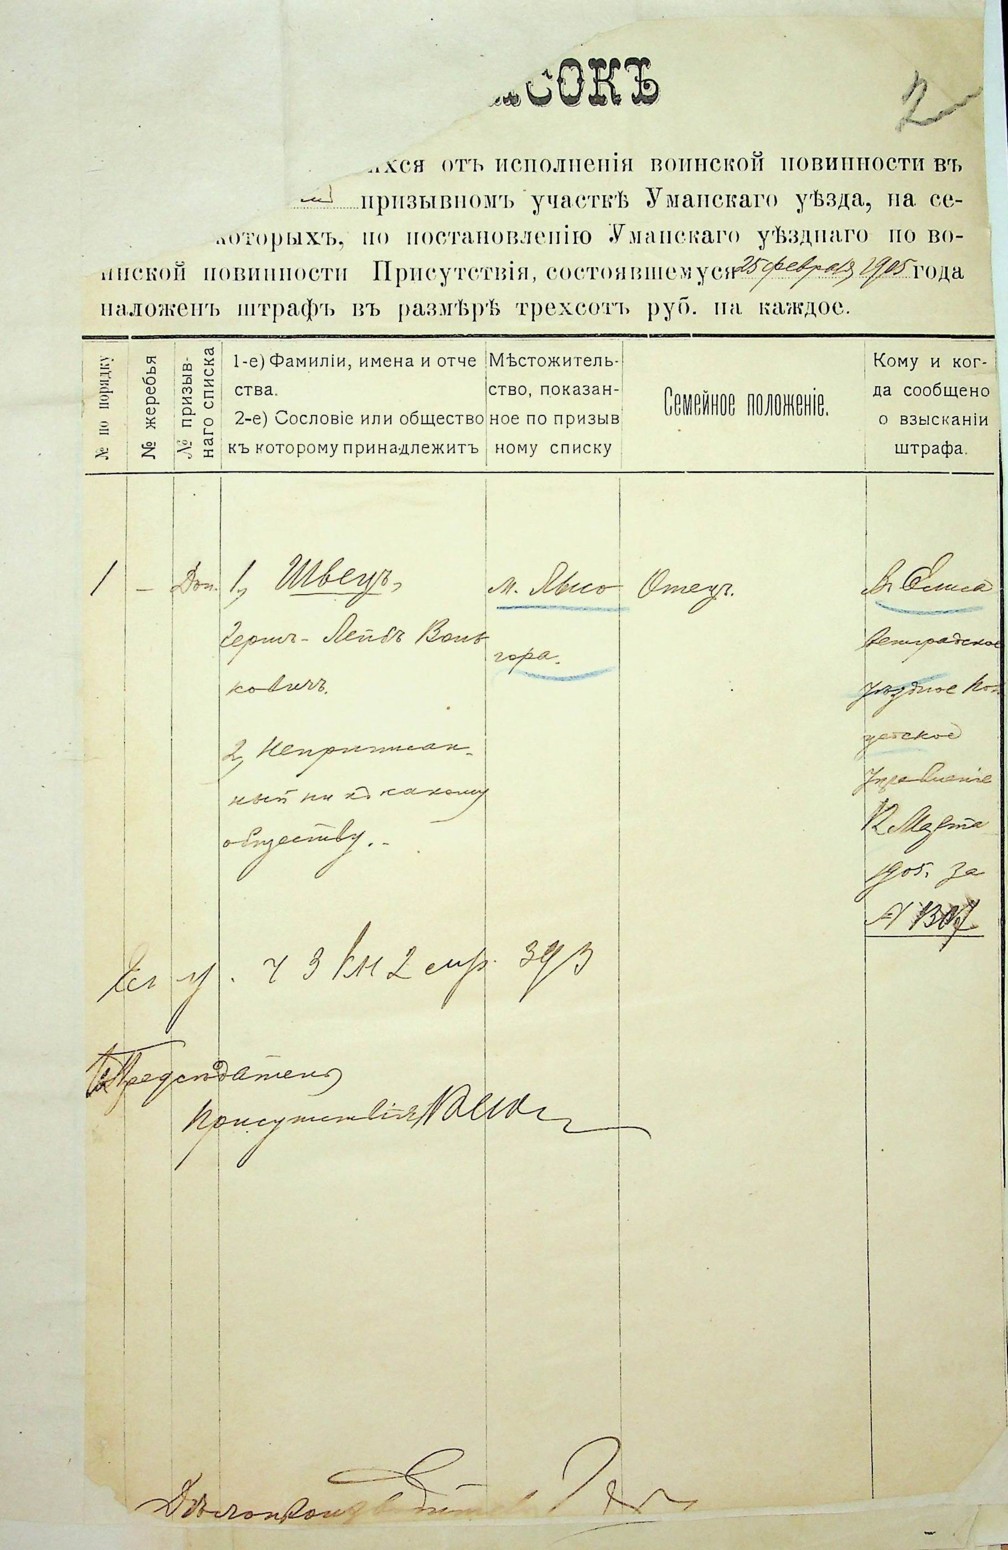 СОКЪ
2
ихся отъ исполненія воинской повинности въ
призывномъ участкѣ Уманскаго уѣзда, на се-
которыхъ, по постановленію Уманскаго уѣзднаго по во-
инской повинности Присутствія, состоявшемуся 25 февраля 1905 года
наложенъ штрафъ въ размѣрѣ трехсотъ руб. на каждое.
№ по порядку
№ жеребья
№ призыв-
наго списка
1-е) Фамиліи, имена и отче
ства.
2-е) Сословіе или общество
къ которому принадлежитъ
Мѣстожитель-
ство, показан-
ное по призыв
ному списку
Семейное положеніе.
Кому и ког-
да сообщено
о взысканіи
штрафа.
1
–
Доп.
1, Швецъ,
Гершъ-Лейбъ Воль
ковичъ.
2, Неприписан-
ный ни къ какому
обществу.
м. Лысо
гора.
Отецъ.
Въ Елиса
ветградское
уѣздное Пол
цейское
Управленіе
12 Марта
1905. за
№ 1307
ч 3 кн 2 стр. 393
Предсѣдатель
Присутствія
Дѣлопроизводитель